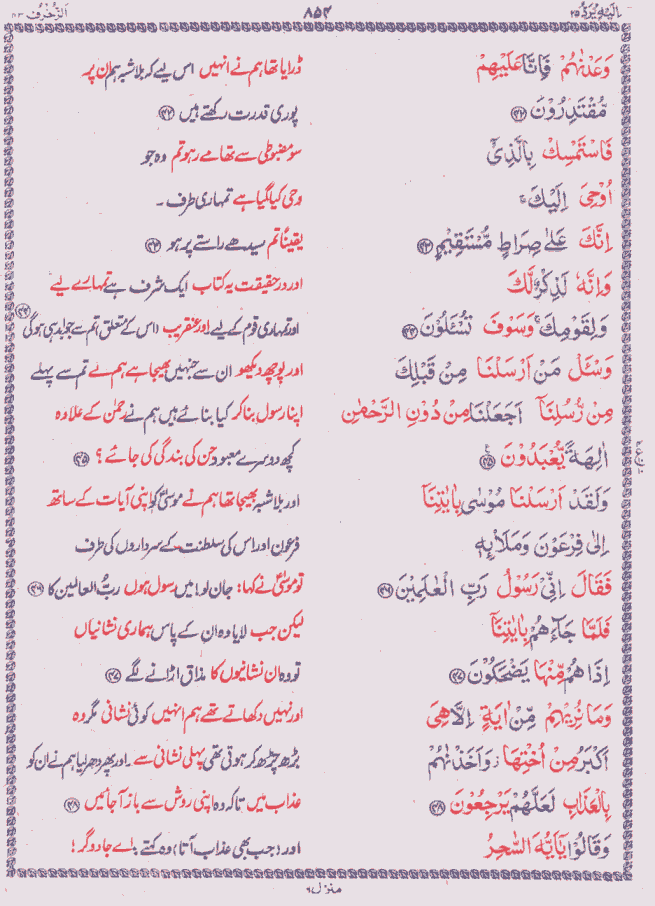 اِلَیْهِ یُرَدُّ ۲۵ ۸۵۲ اَلزُّخْرُف ۴۳
وَعَدْنٰهُمْ فَاِنَّا عَلَيْهِمْ ڈرایا تھا ہم نے انہیں اس لیے کہ بلاشبہ ہم ان پر
مُّقْتَدِرُوْنَ ﴿۴۲﴾ پوری قدرت رکھتے ہیں ﴿۴۲﴾
فَاسْتَمْسِكْ بِالَّذِیْۤ سو مضبوطی سے تھامے رہو تم وہ جو
اُوْحِیَ اِلَيْكَ ۚ وحی کیا گیا ہے تمہاری طرف ۔
اِنَّكَ عَلٰى صِرَاطٍ مُّسْتَقِيْمٍ ﴿۴۳﴾ یقیناً تم سیدھے راستے پر ہو ﴿۴۳﴾
وَاِنَّهٗ لَذِكْرٌ لَّكَ اور درحقیقت یہ کتاب ایک شرف ہے تمہارے لیے
وَلِقَوْمِكَ ۚ وَسَوْفَ تُسْئَلُوْنَ ﴿۴۴﴾ اور تمہاری قوم کے لیے اور عنقریب (اس کے متعلق تم سے جوابدہی ہوگی ﴿۴۴﴾
وَسْئَلْ مَنْ اَرْسَلْنَا مِنْ قَبْلِكَ اور پوچھ دیکھو ان سے جنہیں بھیجا ہے ہم نے تم سے پہلے
مِنْ رُّسُلِنَاۤ اَجَعَلْنَا مِنْ دُوْنِ الرَّحْمٰنِ اپنا رسول بنا کر کیا بنائے ہیں ہم نے رحمٰن کے علاوہ
اٰلِهَةً يُّعْبَدُوْنَ ﴿۴۵﴾ کچھ دوسرے معبود جن کی بندگی کی جائے ؟ ﴿۴۵﴾
وَلَقَدْ اَرْسَلْنَا مُوْسٰى بِاٰيٰتِنَاۤ اور بلاشبہ بھیجا تھا ہم نے موسیٰؑ کو اپنی آیات کے ساتھ
اِلٰى فِرْعَوْنَ وَمَلَا۟ئِهٖ فرعون اور اس کی سلطنت کے سرداروں کی طرف
فَقَالَ اِنِّیْ رَسُوْلُ رَبِّ الْعٰلَمِيْنَ ﴿۴۶﴾ تو موسیٰؑ نے کہا : جان لو! میں رسول ہوں ربُّ العالمین کا ﴿۴۶﴾
فَلَمَّا جَآءَهُمْ بِاٰيٰتِنَاۤ لیکن جب لایا وہ ان کے پاس ہماری نشانیاں
اِذَا هُمْ مِّنْهَا يَضْحَكُوْنَ ﴿۴۷﴾ تو وہ ان نشانیوں کا مذاق اڑانے لگے ﴿۴۷﴾
وَمَا نُرِيْهِمْ مِّنْ اٰيَةٍ اِلَّا هِیَ اور نہیں دکھاتے تھے ہم انہیں کوئی نشانی مگر وہ
اَكْبَرُ مِنْ اُخْتِهَا ز وَاَخَذْنٰهُمْ بڑھ چڑھ کر ہوتی تھی پہلی نشانی سے ۔ اور پھر دھر لیا ہم نے ان کو
بِالْعَذَابِ لَعَلَّهُمْ يَرْجِعُوْنَ ﴿۴۸﴾ عذاب میں تاکہ وہ اپنی روش سے باز آ جائیں ﴿۴۸﴾
وَقَالُوْا يٰۤاَيُّهَ السّٰحِرُ اور (جب بھی عذاب آتا) وہ کہتے : اے جادوگر !
منزل ۶